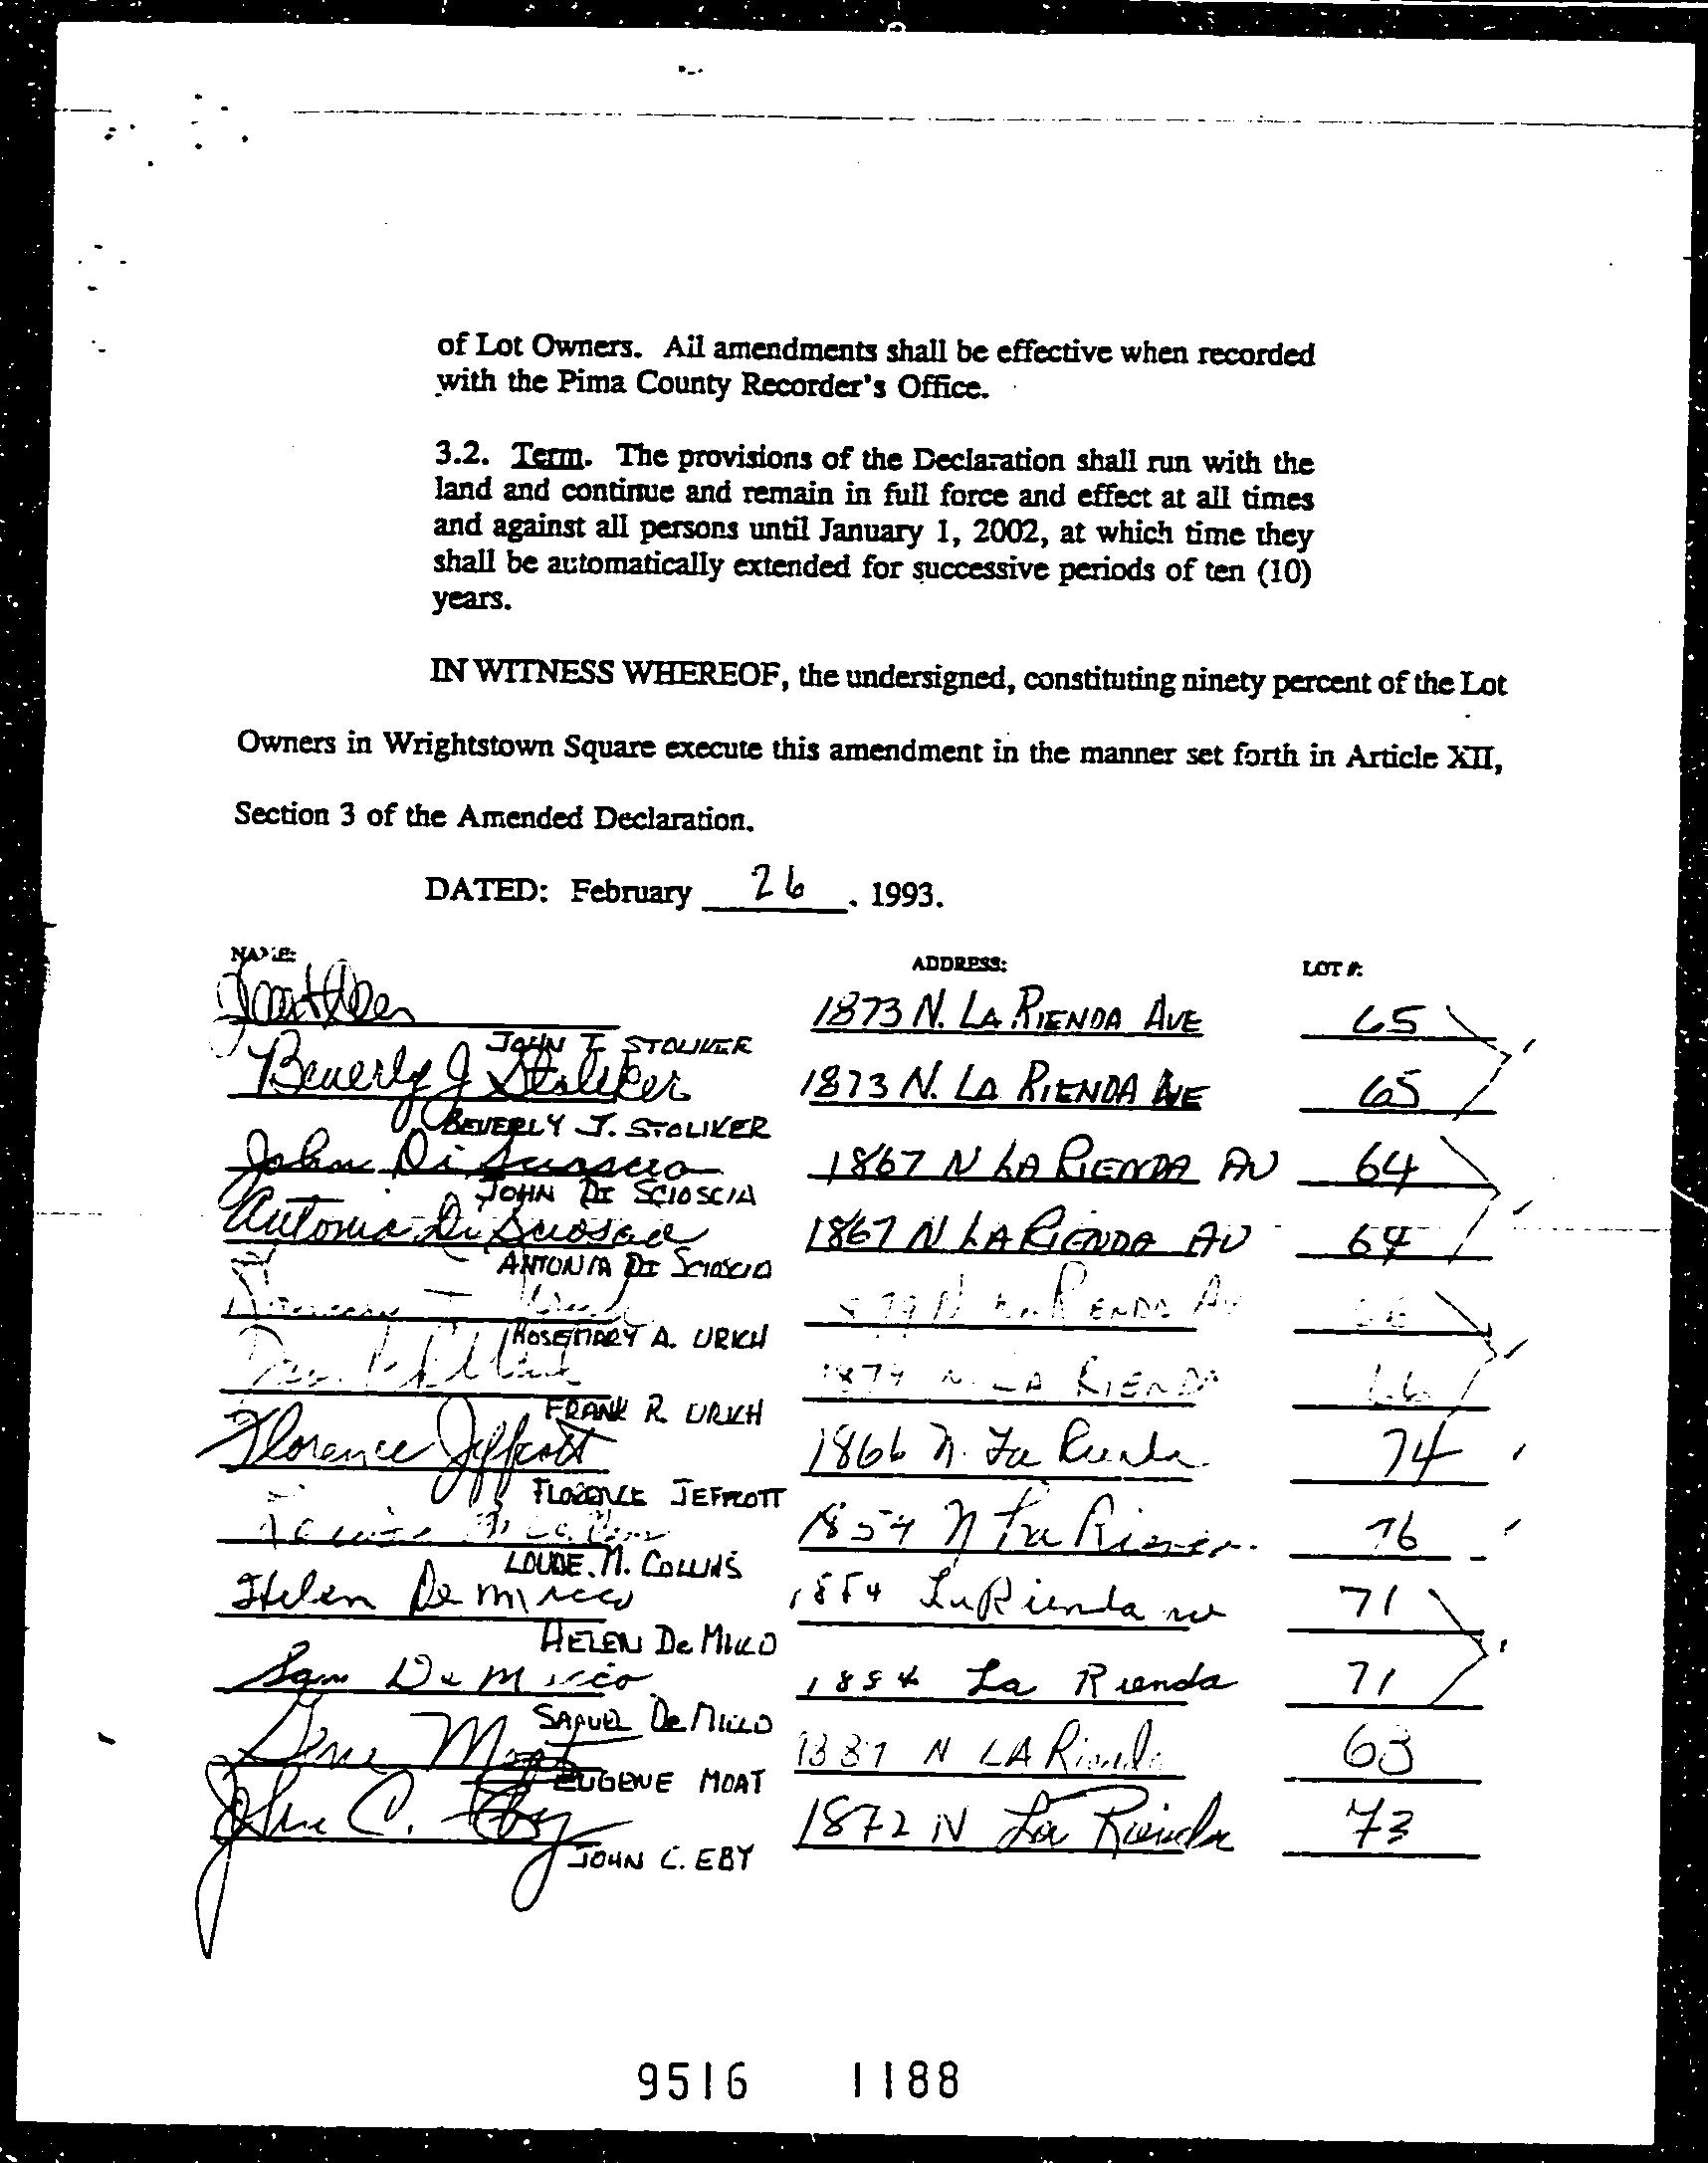 of Lot Owners. All amendments shall be effective when recorded
with the Pima County Recorder's Office.
3.2. Term. The provisions of the Declaration shall run with the
land and continue and remain in full force and effect at all times
and against all persons until January 1, 2002, at which time they
shall be automatically extended for successive periods of ten (10)
years.
IN WITNESS WHEREOF, the undersigned, constituting ninety percent of the Lot
Owners in Wrightstown Square execute this amendment in the manner set forth in Article XII,
Section 3 of the Amended Declaration.
DATED: February 26, 1993.
NAME: ADDRESS: LOT #:
1873 N. LA RIENDA AVE 65
JOHN T. STOLIKER
Beverly J Stoliker 1873 N. LA RIENDA AVE 65
BEVERLY J. STOLIKER
John Di Scioscio 1867 N LA RIENDA AV 64
JOHN DI SCIOSCIA
Antonia Di Scioscia 1867 N LA RIENDA AV 64
ANTONIA DI SCIOSCIO
LA RIENDA AV
ROSEMARY A. URICH
1879 N. LA RIENDA 66
FRANK R. URICH
Florence Jeffcott 1866 N. La Rienda 74
FLORENCE JEFFCOTT
1854 N La Rienda 76
M. COLLINS
Helen De Micco 1884 La Rienda ave 71
HELEN De MICCO
Sam De Micco 1884 La Rienda 71
SAMUEL De MICCO
Gene Moat N LA Rienda 63
EUGENE MOAT
John C. Eby 1872 N La Rienda 73
JOHN C. EBY
9516 1188